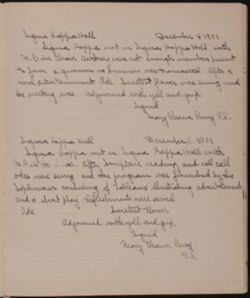 Sigma Kappa Hall December 4 1909
Sigma Kappa met in Sigma Kappa Hall with
in chair. As there were not enough members present
to form a quorum no business was transacted. After a
entertainment Ode Sweetest Flower was sung and
the meeting was adjourned with yell and grip
Signed
Mary Eleanor
Sigma Kappa Hall December 11
Sigma Kappa met in Sigma Kappa Hall with
After Scripture reading and roll call
odes were sung and the program was furnished by the
Sophomores consisting of Tableaux illustrating advertisements
and a short play. Refreshments were served.
Ode Sweetest Flower
Adjourned with yell and grip
Signed
Mary Eleanor